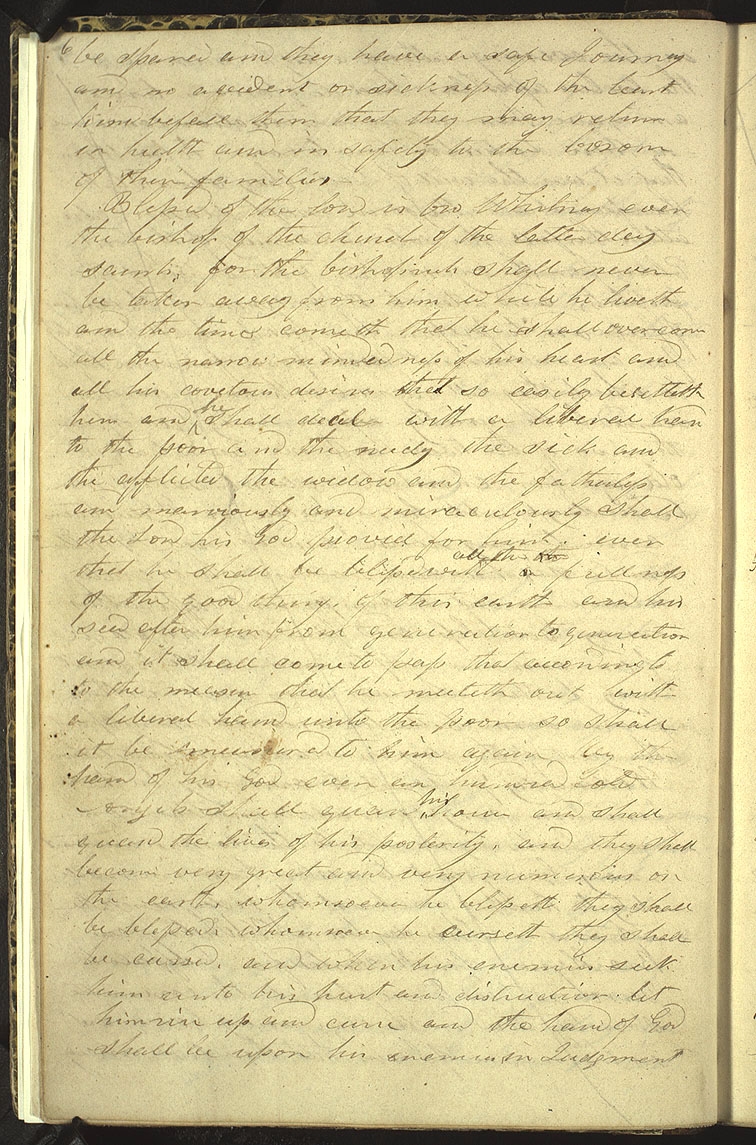 6
be spared and they have a safe Journey
and no accident or sickness of the least
kind befall them that they may return
in health and in safety to the bosom
of their families
Blessed of the Lord is bro Whitney even
the bishop of the church of the latter day
saints, for the bishoprick shall never
be taken away from him while he liveth
and the time cometh that he shall overcome
all the narrow mindedness of his heart and
all his covetous desires that so easily besetteth
him and he shall deal with a liberal hand
to the poor and the needy the sick and
the afflicted the widow and the fatherless
and marviously and miraculously shall
the Lord his God provid for him. even
that he shall be blessed with all the a fullness
of the good things of this earth and his
seed after him from generation to generation
and it shall come to pass that according to
to the measure that he meeteth out with
a liberal hand unto the poor so shall
it be measured to him again by the
hand of his God even an hundred fold
Angels shall guard his house and shall
guard the lives of his posterity, and they shall
become very great and very numerous on
the earth, whomsoever he blesseth they shall
be blessed. whomsoever he curseth they shall
be cursed. and when his enemies seek
him unto his hurt and distruction let
him rise up and curse and the hand of God
shall be upon his enemies in Judgment